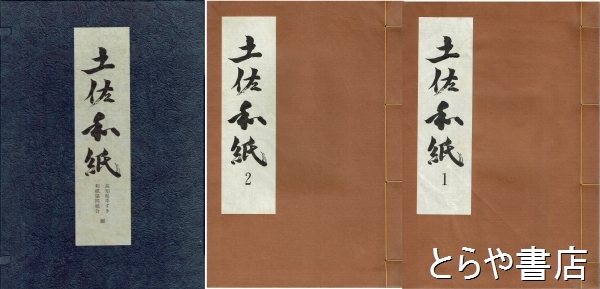 土佐和紙
高知県手すき
和紙協同組合 編
土佐和紙
2
土佐和紙
1
とらや書店